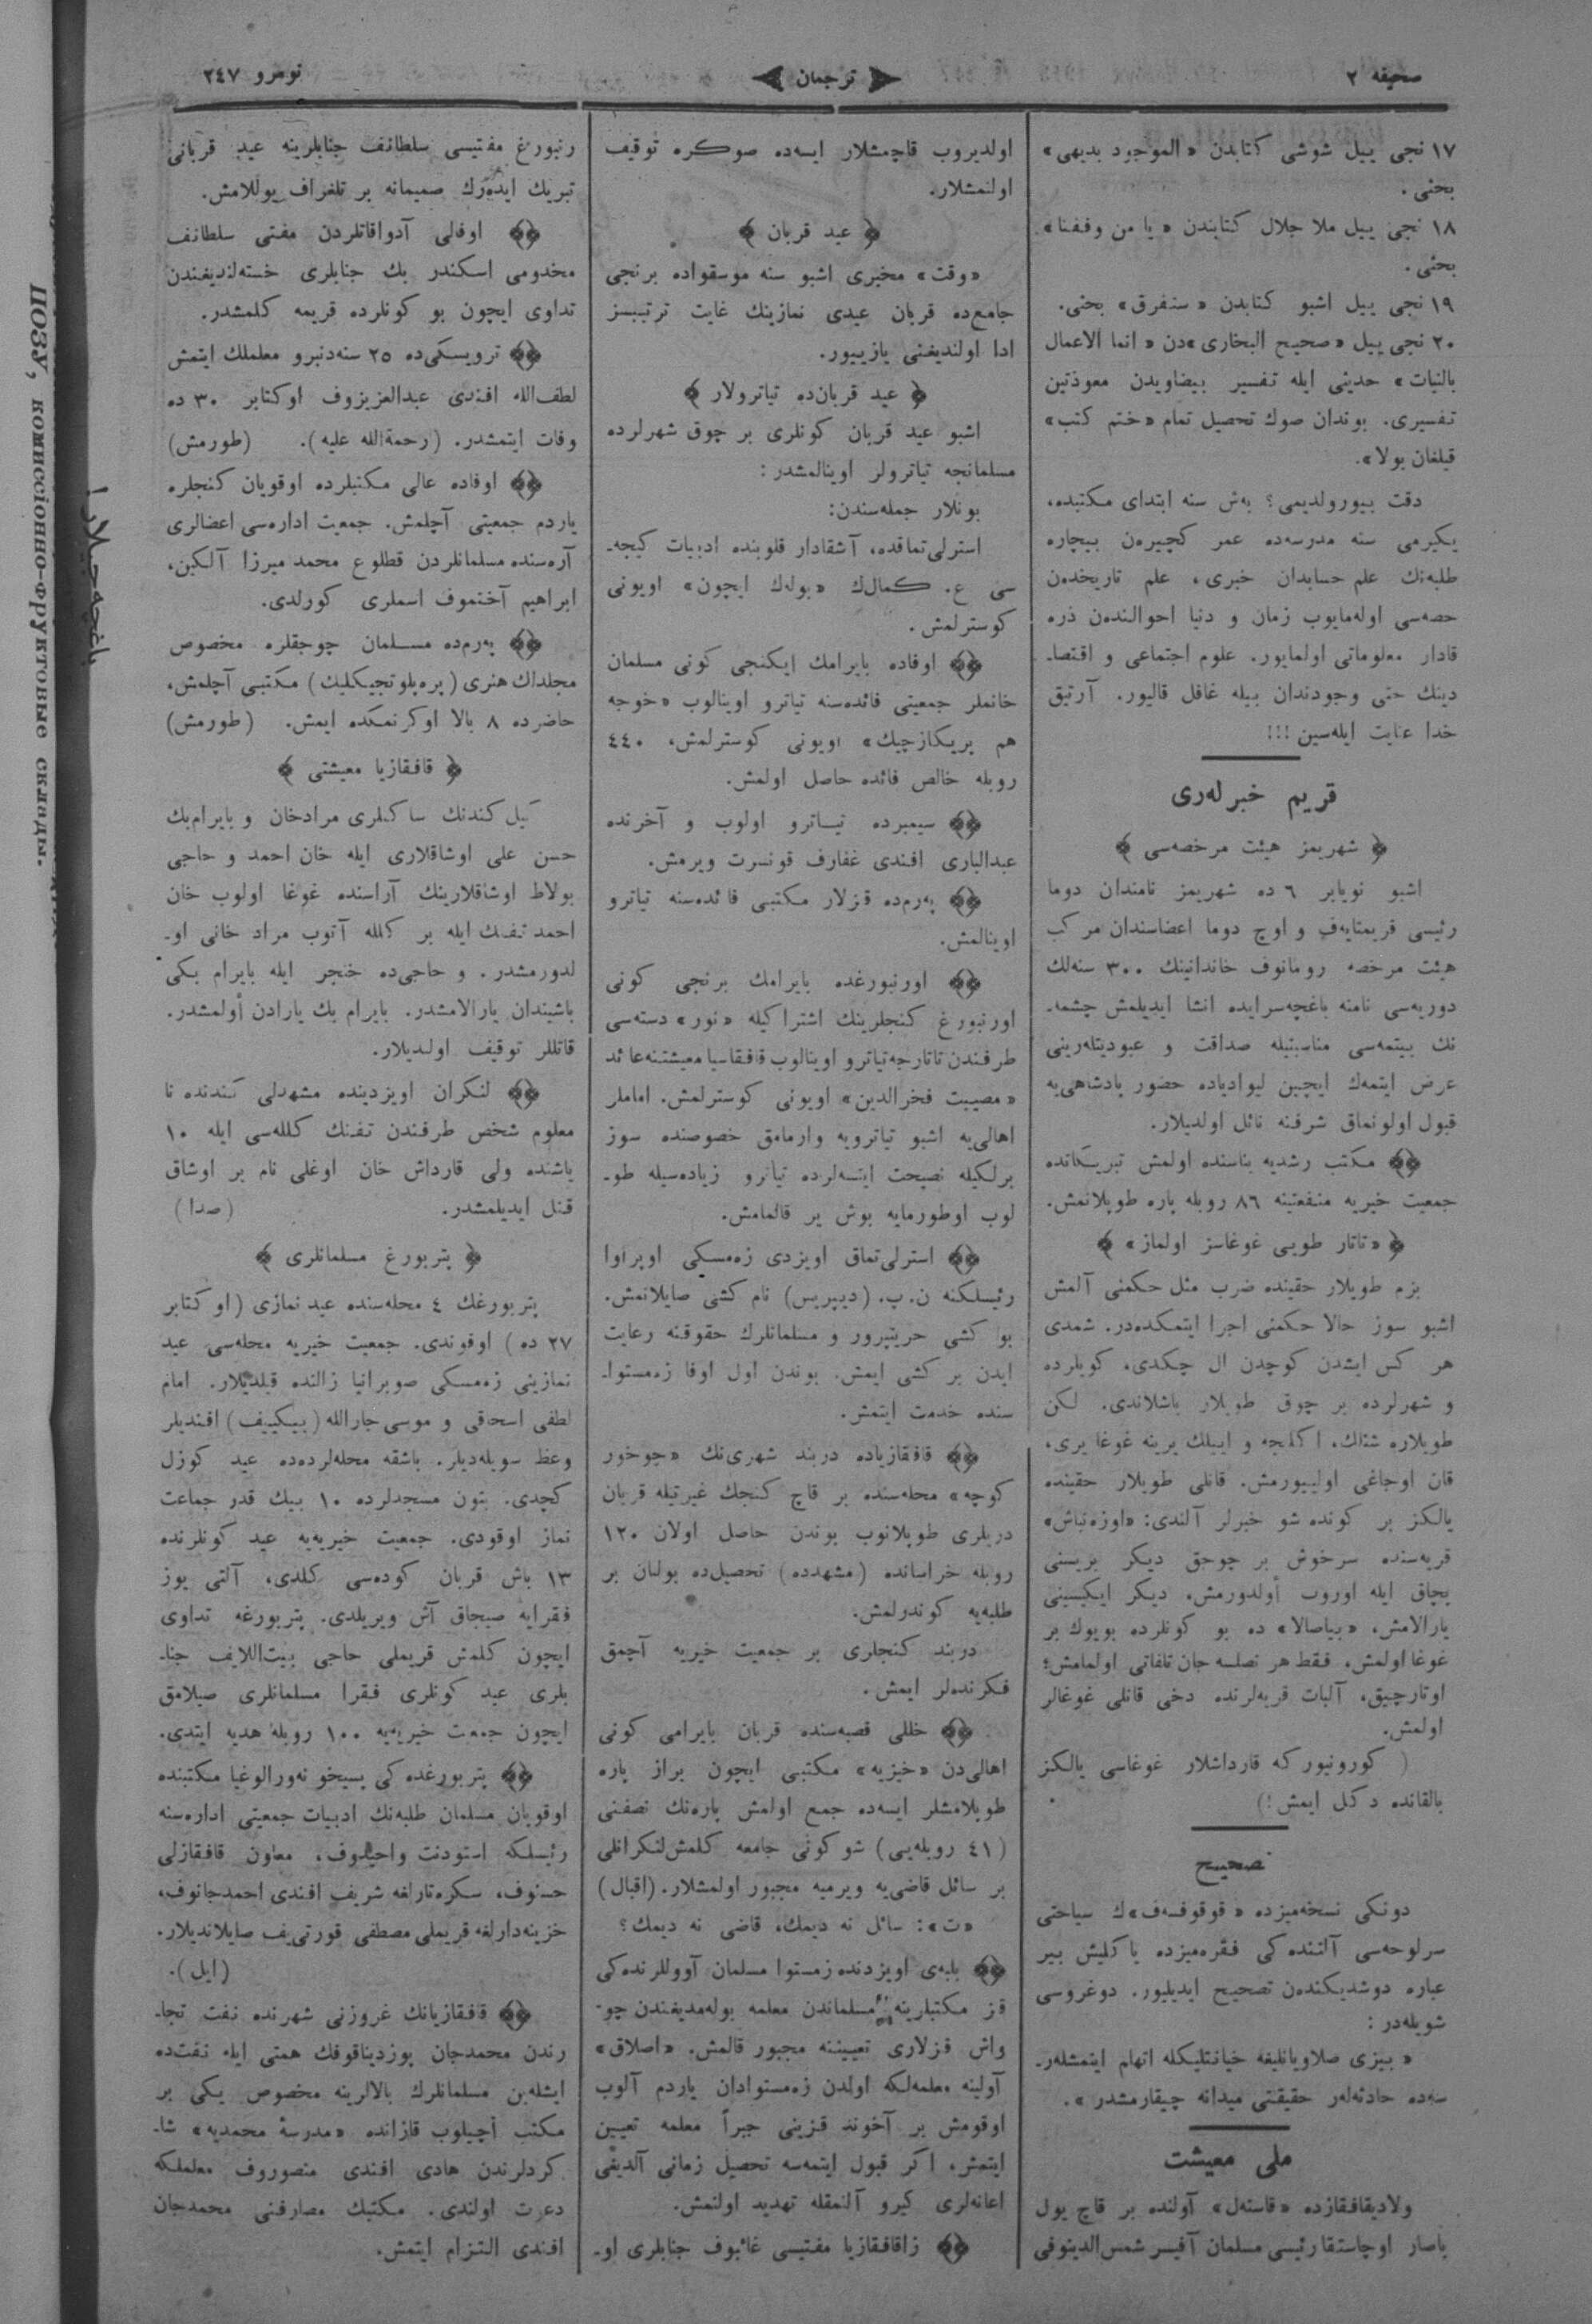 صحیفه ٢
ترجمان
نومرو ٢٤٧
١٧ نجی ییل شوشی کتابدن «الموجود بدیهی»
بحثی.
١٨ نجی ییل ملا جلال کتابندن «یا من وفقنا»
بحثی.
١٩ نجی ییل اشبو کتابدن «ستفرق» بحثی.
٢٠ نجی ییل «صحیح البخاری»دن «انما الاعمال
بالنیات» حدیثی ایله تفسیر بیضاویدن معوذتین
تفسیری. بوندان صوك تحصیل تمام «ختم کتب»
قیلغان بولا».
دقت بیورولدیمی؟ بەش سنه ابتدای مکتبده،
یکیرمی سنه مدرسەده عمر کچیرەن بیچاره
طلبەنك علم حسابدان خبری، علم تاریخدەن
حصەسی اولەمایوب زمان و دنیا احوالندەن ذره
قادار معلوماتی اولمایور. علوم اجتماعی و اقتصا۔
دینك حتی وجودندان بیله غافل قالیور. آرتیق
خدا عنایت ایلەسین!!!
قریم خبرلەری
شهریمز هیئت مرخصەسی
اشبو نویابر ٦ ده شهریمز نامندان دوما
رئیسی قریمتایەف و اوچ دوما اعضاسندان مرکب
هیئت مرخصه رومانوف خاندانینك ٣٠٠ سنەلك
دوریەسی نامنه باغچەسرایده انشا ایدیلمش چشمە۔
نك بیتمەسی مناسبتیله صداقت و عبودیتلەرینی
عرض ایتمەك ایچین لیوادیاده حضور پادشاهی‌یه
قبول اولونماق شرفنه نائل اولدیلار.
مکتب رشدیه بناسنده اولمش تبریکاتده
جمعیت خیریه منفعتینه ٨٦ روبله پاره طوپلانمش.
«تاتار طویی غوغاسز اولماز»
بزم طویلار حقینده ضرب مثل حکمنی آلمش
اشبو سوز حالا حکمنی اجرا ایتمکدەدر. شمدی
هر کس ایشدن کوچدن ال چکدی، کویلرده
و شهرلرده بر چوق طویلار باشلاندی. لکن
طویلاره شنلك، اکلنجه و اییلك یرینه غوغا یری،
قان اوجاغی اولییورمش. قانلی طویلار حقینده
یالکز بر کونده شو خبرلر آلندی: «اوزەنباش»
قریەسنده سرخوش بر چوجق دیکر بریسنی
پچاق ایله اوروب أولدورمش، دیکر ایکیسینی
یارالامش، «بیاصالا» ده بو کونلرده بویوك بر
غوغا اولمش، فقط هر نصلسه جان تلفاتی اولمامش؛
اوتارچیق، آلبات قریەلرنده دخی قانلی غوغالر
اولمش.
( کورونیور که قارداشلار غوغاسی یالکز
بالقانده دکل ایمش!)
تصحیح
دونکی نسخەمیزده «قوقوفسەف»ك سیاحتی
سرلوحەسی آلتنده کی فقرەمیزده یاکلیش بیر
عباره دوشدیکندەن تصحیح ایدیلیور. دوغروسی
شویلەدر:
«بیزی صلاویانلیغه خیانتلیکله اتهام ایتمشلەر۔
سەده حادثەلەر حقیقتی میدانه چیقارمشدر».
ملی معیشت
ولادیقافقازده «قاستەل» آولنده بر قاچ یول
باصار اوچاستقا رئیسی مسلمان آفیسر شمس‌الدینوفی
اولدیروب قاچمشلار ایسەده صوکره توقیف
اولنمشلار.
عید قربان
«وقت» مخبری اشبو سنه موسقواده برنجی
جامعده قربان عیدی نمازینك غایت ترتیبسز
ادا اولندیغنی یازییور.
عید قربان‌ده تیاترولار
اشبو عید قربان کونلری بر چوق شهرلرده
مسلمانچه تیاترولر اوینالمشدر:
بونلار جملەسندن:
استرلی‌تماقده، آشقادار قلوبنده ادبیات کیجە۔
سی ع. کمال‌ك «بولەك ایچون» اویونی
کوسترلمش.
اوفاده بایرامك ایکنجی کونی مسلمان
خانملر جمعیتی فائدەسنه تیاترو اوینالوب «خوجه
هم پریکازچیك» اویونی کوسترلمش، ٤٤٠
روبله خالص فائده حاصل اولمش.
سیمبرده تیاترو اولوب و آخرنده
عبدالباری افندی غفارف قونسرت ویرمش.
پەرم‌ده قزلار مکتبی فائدەسنه تیاترو
اوینالمش.
اورنبورغده بایرامك برنجی کونی
اورنبورغ کنجلرینك اشتراکیله «نور» دستەسی
طرفندن تاتارجه تیاترو اوینالوب قافقاسیا معیشتنه عائد
«مصیبت فخرالدین» اویونی کوسترلمش. اماملر
اهالی‌یه اشبو تیاترویه وارمامق خصوصنده سوز
برلکیله نصیحت ایتسەلرده تیاترو زیادەسیله طو۔
لوب اوطورمایه بوش یر قالمامش.
استرلی‌تماق اویزدی زەمسکی اوپراوا
رئیسلکنه ن.پ. (دیپریس) نام کشی صایلانمش.
بو کشی حریتپرور و مسلمانلرك حقوقنه رعایت
ایدن بر کشی ایمش. بوندن اول اوفا زەمستوا۔
سنده خدمت ایتمش.
قافقازیاده دربند شهری‌نك «جوخور
کوچه» محلەسنده بر قاچ کنجك غیرتیله قربان
دریلری طوپلانوب بوندن حاصل اولان ١٢٠
روبله خراسانده (مشهدده) تحصیل‌ده بولنان بر
طلبەیه کوندرلمش.
دربند کنجلری بر جمعیت خیریه آچمق
فکرندەلر ایمش.
خللی قصبەسنده قربان بایرامی کونی
اهالی‌دن «خیزیه» مکتبی ایچون براز پاره
طوپلامشلر ایسەده جمع اولمش پارەنك نصفنی
(٤١ روبلەیی) شو کونی جامعه کلمش لنکرانلی
بر سائل قاضی‌یه ویرمیه مجبور اولمشلار. (اقبال)
«ت»: سائل نه دیمك، قاضی نه دیمك؟
بلبەی اویزدنده زمستوا مسلمان آووللرنده‌کی
قز مکتبلرینه مسلماندن معلمه بولەمدیغندن چو۔
واش قزلاری تعییننه مجبور قالمش. «اصلاق»
آولینه معلمەلکه اولدن زەمستوادان یاردم آلوب
اوقومش بر آخوند قزینی جبراً معلمه تعیین
ایتمش، اکر قبول ایتمەسه تحصیل زمانی آلدیغی
اعانەلری کیرو آلنمقله تهدید اولنمش.
زاقافقازیا مفتیسی غائبوف جنابلری او۔
رنبورغ مفتیسی سلطانف جنابلرینه عید قربانی
تبریك ایدەرك صمیمانه بر تلغراف یوللامش.
اوفالی آدواقاتلردن مفتی سلطانف
مخدومی اسکندر بك جنابلری خستەلندیغندن
تداوی ایچون بو کونلرده قریمه کلمشدر.
ترویسکی‌ده ٢٥ سنەدنبرو معلملك ایتمش
لطف‌الله افندی عبدالعزیزوف اوکتابر ٣٠ ده
وفات ایتمشدر. (رحمةالله علیه). (طورمش)
اوفاده عالی مکتبلرده اوقویان کنجلره
یاردم جمعیتی آچلمش. جمعیت ادارەسی اعضالری
آرەسنده مسلمانلردن قطلوغ محمد میرزا آلکین،
ابراهیم آختموف اسملری کورلدی.
پەرم‌ده مسلمان چوجقلره مخصوص
مجلدلك هنری (پرەپلوتچیکلیك) مکتبی آچلمش،
حاضرده ٨ بالا اوکرنمکده ایمش. (طورمش)
قافقازیا معیشتی
کیل کندنك ساکنلری مرادخان و بایرام‌بك
حسن علی اوشاقلاری ایله خان احمد و حاجی
بولاط اوشاقلارینك آراسنده غوغا اولوب خان
احمد تفنك ایله بر کلله آتوب مراد خانی او۔
لدورمشدر. و حاجی‌ده خنجر ایله بایرام بکی
باشیندان یارالامشدر. بایرام بك یارادن أولمشدر.
قاتللر توقیف اولدیلار.
لنکران اویزدینده مشهدلی کندنده نا
معلوم شخص طرفندن تفنك کللەسی ایله ١٠
یاشنده ولی قارداش خان اوغلی نام بر اوشاق
قتل ایدیلمشدر. (صدا)
پتربورغ مسلمانلری
پتربورغك ٤ محلەسنده عید نمازی (اوکتابر
٢٧ ده) اوقوندی. جمعیت خیریه محلەسی عید
نمازینی زەمسکی صوبرانیا زالنده قیلدیلار. امام
لطفی اسحاقی و موسی جارالله (بیکییف) افندیلر
وعظ سویلەدیلر. باشقه محلەلردەده عید کوزل
کچدی. بتون مسجدلرده ١٠ بیك قدر جماعت
نماز اوقودی. جمعیت خیریەیه عید کونلرنده
١٣ باش قربان کودەسی کلدی، آلتی یوز
فقرایه صیجاق آش ویریلدی. پتربورغه تداوی
ایچون کلمش قریملی حاجی بیت‌اللایف جنا۔
بلری عید کونلری فقرا مسلمانلری صیلامق
ایچون جمعیت خیریەیه ١٠٠ روبله هدیه ایتدی.
پتربورغده کی پسیخو نەورالوغیا مکتبنده
اوقویان مسلمان طلبەنك ادبیات جمعیتی ادارەسنه
رئیسلکه استودنت واحیدوف، معاون قافقازلی
حسنوف، سکرەتارلغه شریف افندی احمدجانوف،
خزینەدارلغه قریملی مصطفی قورتی‌یف صایلاندیلار.
(ایل).
قافقازیانك غروزنی شهرنده نفت تجا۔
رندن محمدجان یوزدیناقوفك همتی ایله نفت‌ده
ایشلەین مسلمانلرك بالالرینه مخصوص یکی بر
مکتب آچیلوب قازانده «مدرسۀ محمدیه» شا۔
کردلرندن هادی افندی منصوروف معلملکه
دعوت اولندی. مکتبك مصارفنی محمدجان
افندی التزام ایتمش.
باغچەچیلار!
ПОЗУ, коммиссіонно-фруктовые склады.